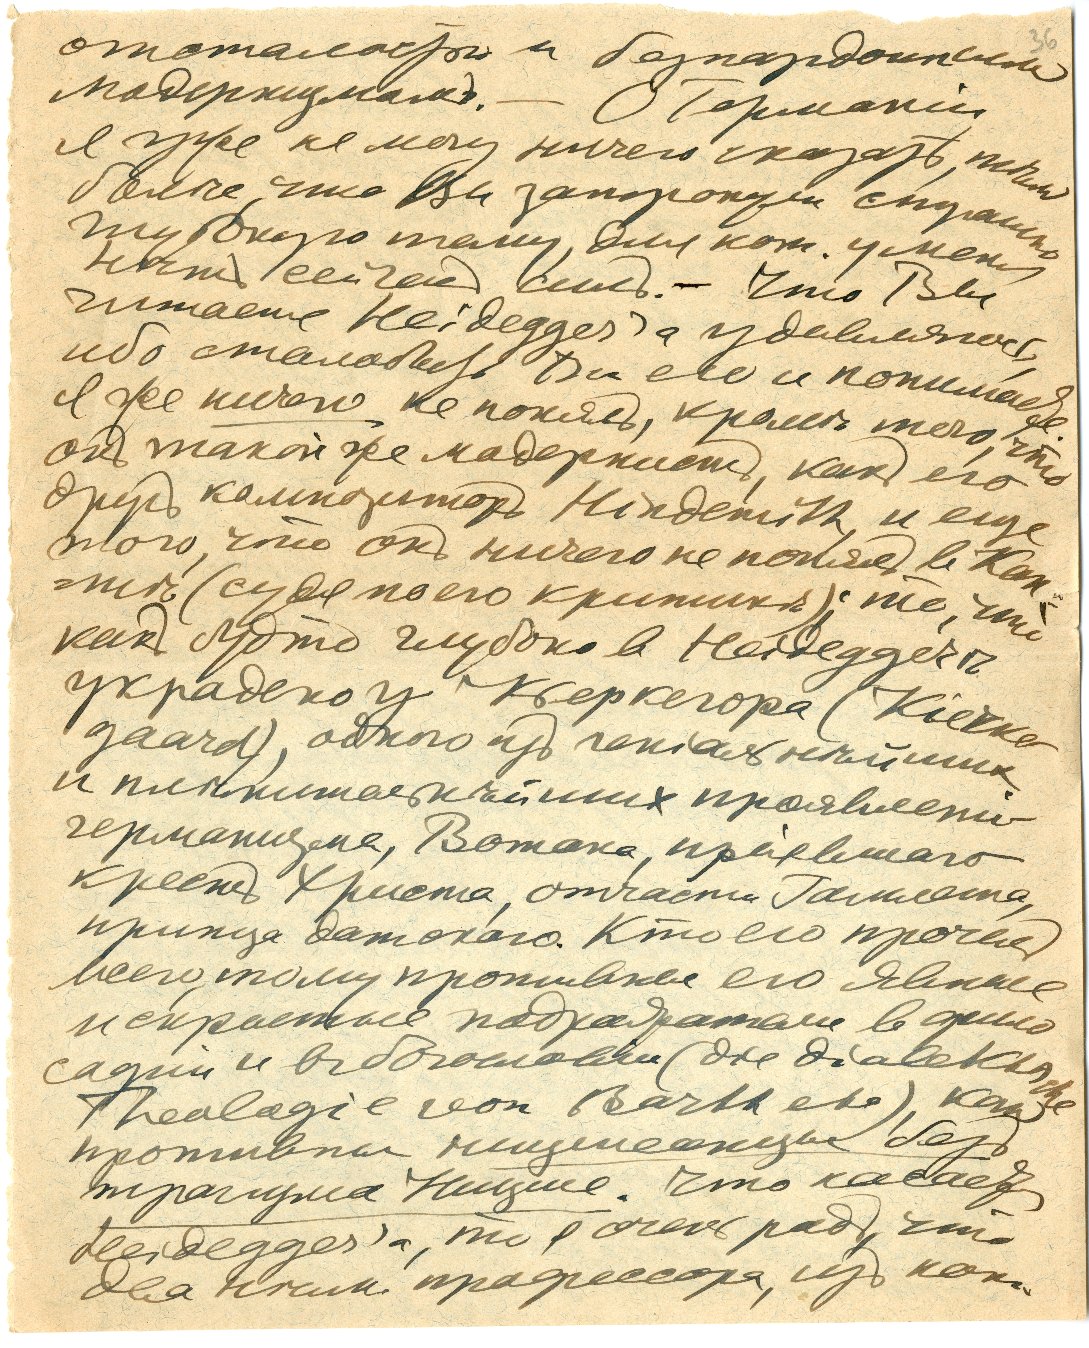 36
отсталостью и безпардоннымъ
модернизмомъ. — О Германіи
я уже не могу ничего сказать, тѣмъ
болѣе, что Вы затронули страшно
глубокую тему, для кот. у меня
нѣтъ сейчасъ силъ. — Что Вы
читаете Heidegger'а удивляюсь,
ибо стало быть Вы его и понимаете.
Я же ничего не понялъ, кромѣ того, что
онъ такой же модернистъ, какъ его
другъ композиторъ Hindemith, и еще
того, что онъ ничего не понялъ в Кан-
тѣ (судя по его критикѣ); то, что
какъ будто глубоко в Heidegger'ѣ
украдено у Кьеркегора (Kierke-
gaard), одного изъ геніальнѣйшихъ
и плѣнительнѣйших проявленій
германизма, Вотана, пріявшаго
крестъ Христа, отчасти Гамлета,
принца датскаго. Кто его прочелъ
всего, тому противны его явные
и скрытые подражатели в фило
софіи и въ богословіи (die dialektische
Theologie von Barth etc), какъ
противны ницшеанцы безъ
трагизма Ницше. Что касается
Heidegger'а, то я очень радъ, что
два нѣм. профессора, изъ кот.